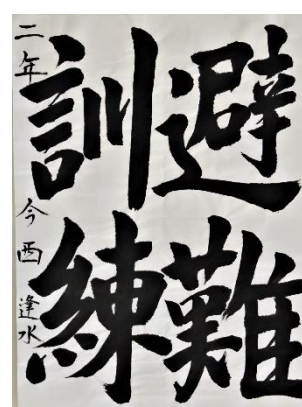 避難
訓練
二年 今西 逢水